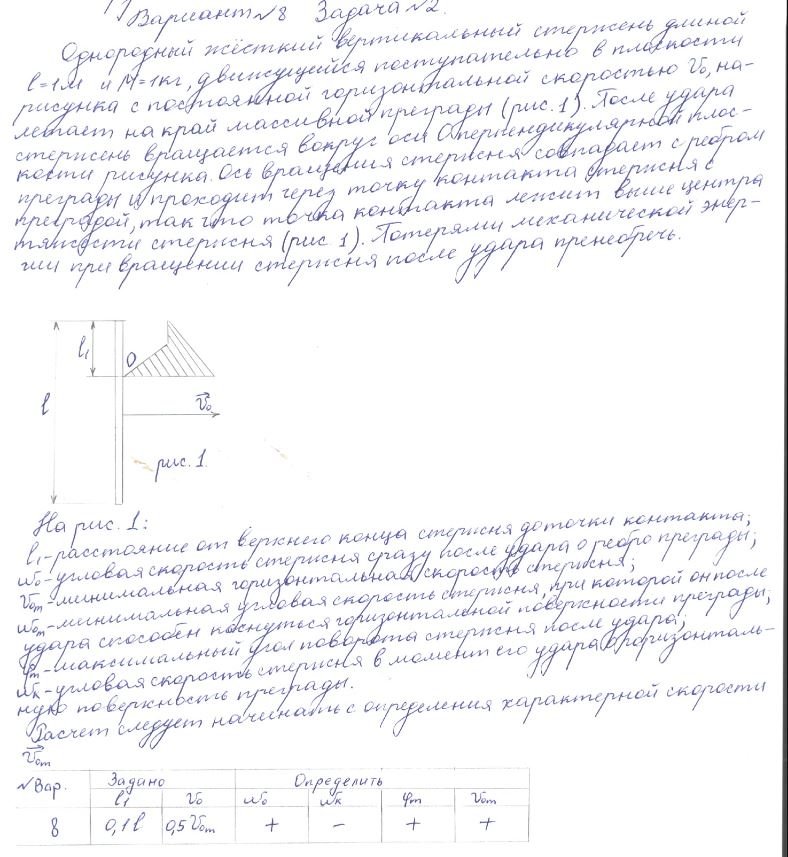 Вариант №8 Задача №2.
Однородный жёсткий вертикальный стержень длиной
l=1м и M=1кг, движущейся поступательно в плоскости
рисунка с постоянной горизонтальной скоростью V₀, на-
летает на край массивной преграды (рис. 1). После удара
стержень вращается вокруг оси О перпендикулярной плос-
кости рисунка. Ось вращения стержня совпадает с ребром
преграды и проходит через точку контакта стержня с
преградой, так что точка контакта лежит выше центра
тяжести стержня (рис. 1). Потерями механической энер-
гии при вращении стержня после удара пренебречь.
l₁
O
l
V₀
рис. 1
На рис. 1:
l₁-расстояние от верхнего конца стержня до точки контакта;
ω₀-угловая скорость стержня сразу после удара о ребро преграды;
V₀m-минимальная горизонтальная скорость стержня;
ω₀m-минимальная угловая скорость стержня, при которой он после
удара способен коснуться горизонтальной поверхности преграды;
φm-максимальный угол поворота стержня после удара;
ωк-угловая скорость стержня в момент его удара о горизонталь-
ную поверхность преграды.
Расчет следует начинать с определения характерной скорости
V₀m
№Вар. Задано Определить
l₁ V₀ ω₀ ωк φm V₀m
8 0,1l 0,5V₀m + − + +